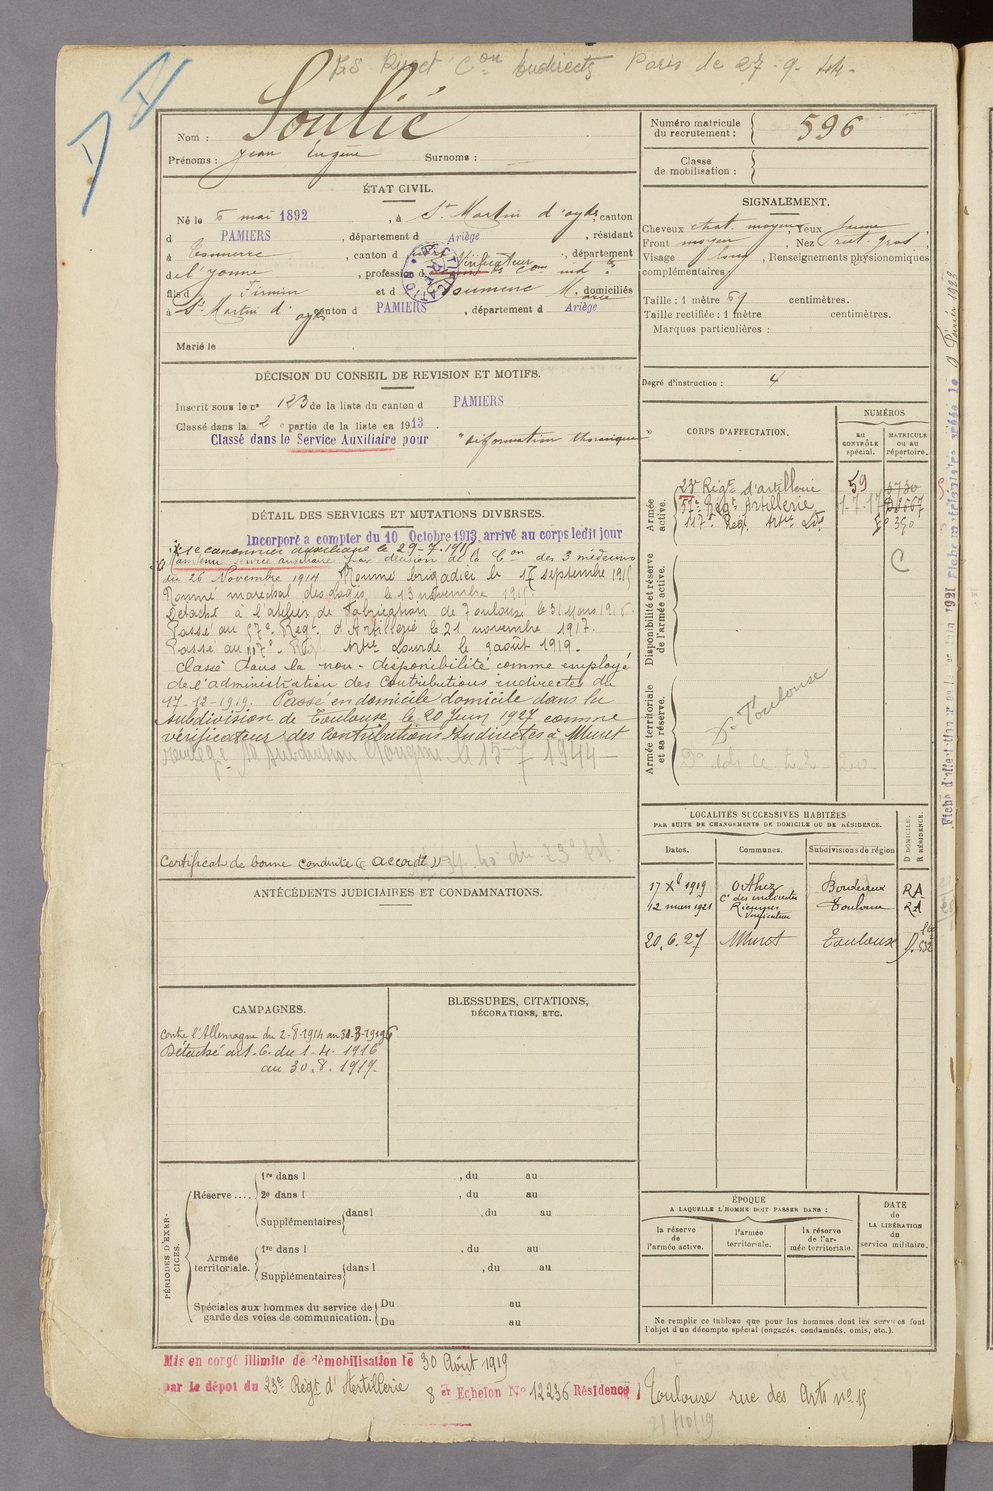 Paris le 27-9-
Nom : Soulié
Prénoms : Jean Eugène Surnoms :
Numéro matricule du recrutement : 596
Classe de mobilisation :
ÉTAT CIVIL.
Né le 5 mai 1892, à St Martin d'oydes, canton
d PAMIERS, département d Ariège, résidant
à, canton d, département
de l'Yonne, profession d Vérificateur Con ind
fils de Firmin et d Soumene Marie, domiciliés
à St Martin d'oydes canton d PAMIERS, département d Ariège
Marié le
SIGNALEMENT.
Cheveux chat. moyen, Yeux jaune
Front moyen, Nez rect. gros
Visage long, Renseignements physionomiques
complémentaires
Taille : 1 mètre 59 centimètres.
Taille rectifiée : 1 mètre centimètres.
Marques particulières :
Degré d'instruction : 4
DÉCISION DU CONSEIL DE REVISION ET MOTIFS.
Inscrit sous le n° 123 de la liste du canton d PAMIERS
Classé dans la 2e partie de la liste en 1913.
Classé dans le Service Auxiliaire pour "déformation thoracique"
DÉTAIL DES SERVICES ET MUTATIONS DIVERSES.
Incorporé a compter du 10 Octobre 1913, arrivé au corps ledit jour
canonnier auxiliaire le 29-7-
Maintenu service auxiliaire par décision de la Con des 3 médecins
du 26 Novembre 1914 Nommé brigadier le 17 septembre 1915
Nommé maréchal des logis le 13 novembre 191
Détaché à l'atelier de Fabrication de Toulouse le 31 Mars 1916.
Passé au 57e Regt d'Artillerie le 21 novembre 1917.
Passé au 117e Reg Artie Lourde le 9 août 1919.
Classé dans la non-disponibilité comme employé
de l'administration des Contributions indirectes du
17-12-1919. Passé en domicile domicile dans la
subdivision de Toulouse le 20 Juin 1927 comme
vérificateur des Contributions Indirectes à Muret
15-7 1944
Certificat de bonne conduite Accordé
ANTÉCÉDENTS JUDICIAIRES ET CONDAMNATIONS.
CAMPAGNES.
Contre l'Allemagne du 2-8-1914 au 31-3-1916
Détaché art. 6. du 1-4-1916
au 30.8.1919-
BLESSURES, CITATIONS,
DÉCORATIONS, ETC.
CORPS D'AFFECTATION.
NUMÉROS
au CONTRÔLE spécial.
MATRICULE ou au répertoire.
Armée active.
23e Régt d'artillerie 59
57e Régt Artillerie
117e Reg. Artie Lde
Disponibilité et réserve de l'armée active.
C
Armée territoriale et sa réserve.
Dn Toulouse
LOCALITÉS SUCCESSIVES HABITÉES
PAR SUITE DE CHANGEMENTS DE DOMICILE OU DE RÉSIDENCE.
Dates. Communes. Subdivisions de région D DOMICILE. R RÉSIDENCE.
17 Xbre 1919 Orthez Bordeaux RA
Cn des indirectes
12 mars 1921 Toulouse RA
20.6.27 Muret Toulouse D.
ÉPOQUE
A LAQUELLE L'HOMME DOIT PASSER DANS :
la réserve de l'armée active.
l'armée territoriale.
la réserve de l'armée territoriale.
DATE de LA LIBÉRATION du service militaire.
Ne remplir ce tableau que pour les hommes dont les services font
l'objet d'un décompte spécial (engagés, condamnés, omis, etc.).
PÉRIODES D'EXERCICES.
Réserve....
1re dans l , du au
2e dans l , du au
Supplémentaires dans l , du au
Armée territoriale.
1re dans l , du au
Supplémentaires dans l , du au
Spéciales aux hommes du service de garde des voies de communication. Du au
Du au
Mis en congé illimité de démobilisation le 30 Août 1919
par le dépôt du 23e Régt d'Artillerie 8e Echelon N° 12236 Résidence Toulouse rue des Arts n° 19